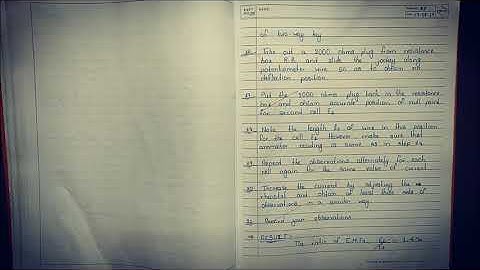 of two-way key
Take out a 2000 ohms plug from resistance
box R.B and slide the jockey along
potentiometer wire so as to obtain no
deflection position.
Put the 2000 ohms plug back in the resistance
box and obtain accurate position of null point
for second cell E₂
Note the length l₂ of wire in this position
for the cell E₂ However make sure that
ammeter reading is same as in step
Repeat the observations alternately for each
cell again for the same value of current
Increase the current by adjusting the
rheostat and obtain at least three sets of
observations in a similar way.
Record your observations.
RESULT:-
The ratio of E.M.Fs, E₁/E₂ =